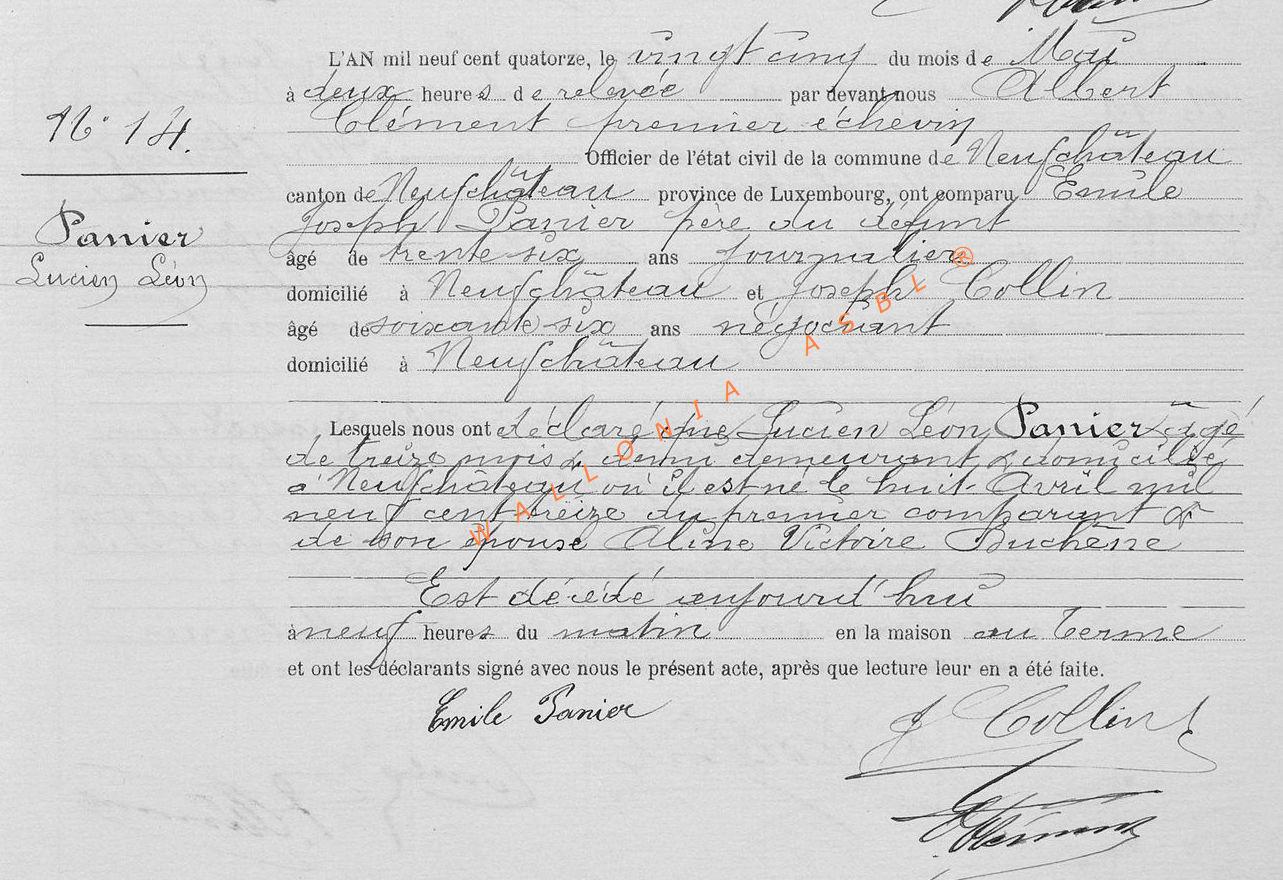 N° 14.
Panier
Lucien Léon
L'AN mil neuf cent quatorze, le vingt cinq du mois de Mai
à deux heures de relevée par devant nous Albert
Clément premier échevin
Officier de l'état civil de la commune de Neufchâteau
canton de Neufchâteau province de Luxembourg, ont comparu Emile
Joseph Panier père du défunt
âgé de trente-six ans journalier
domicilié à Neufchâteau et Joseph Collin
âgé de soixante-six ans négociant
domicilié à Neufchâteau
Lesquels nous ont déclaré que Lucien Léon Panier âgé
de treize mois & demi demeurant & domicilié
à Neufchâteau où il est né le huit Avril mil
neuf cent treize du premier comparant &
de son épouse Aline Victoire Duchêne
Est décédé aujourd'hui
à neuf heures du matin en la maison au Terme
et ont les déclarants signé avec nous le présent acte, après que lecture leur en a été faite.
Emile Panier
J Collin
Clément
WALLONIA ASBL ®